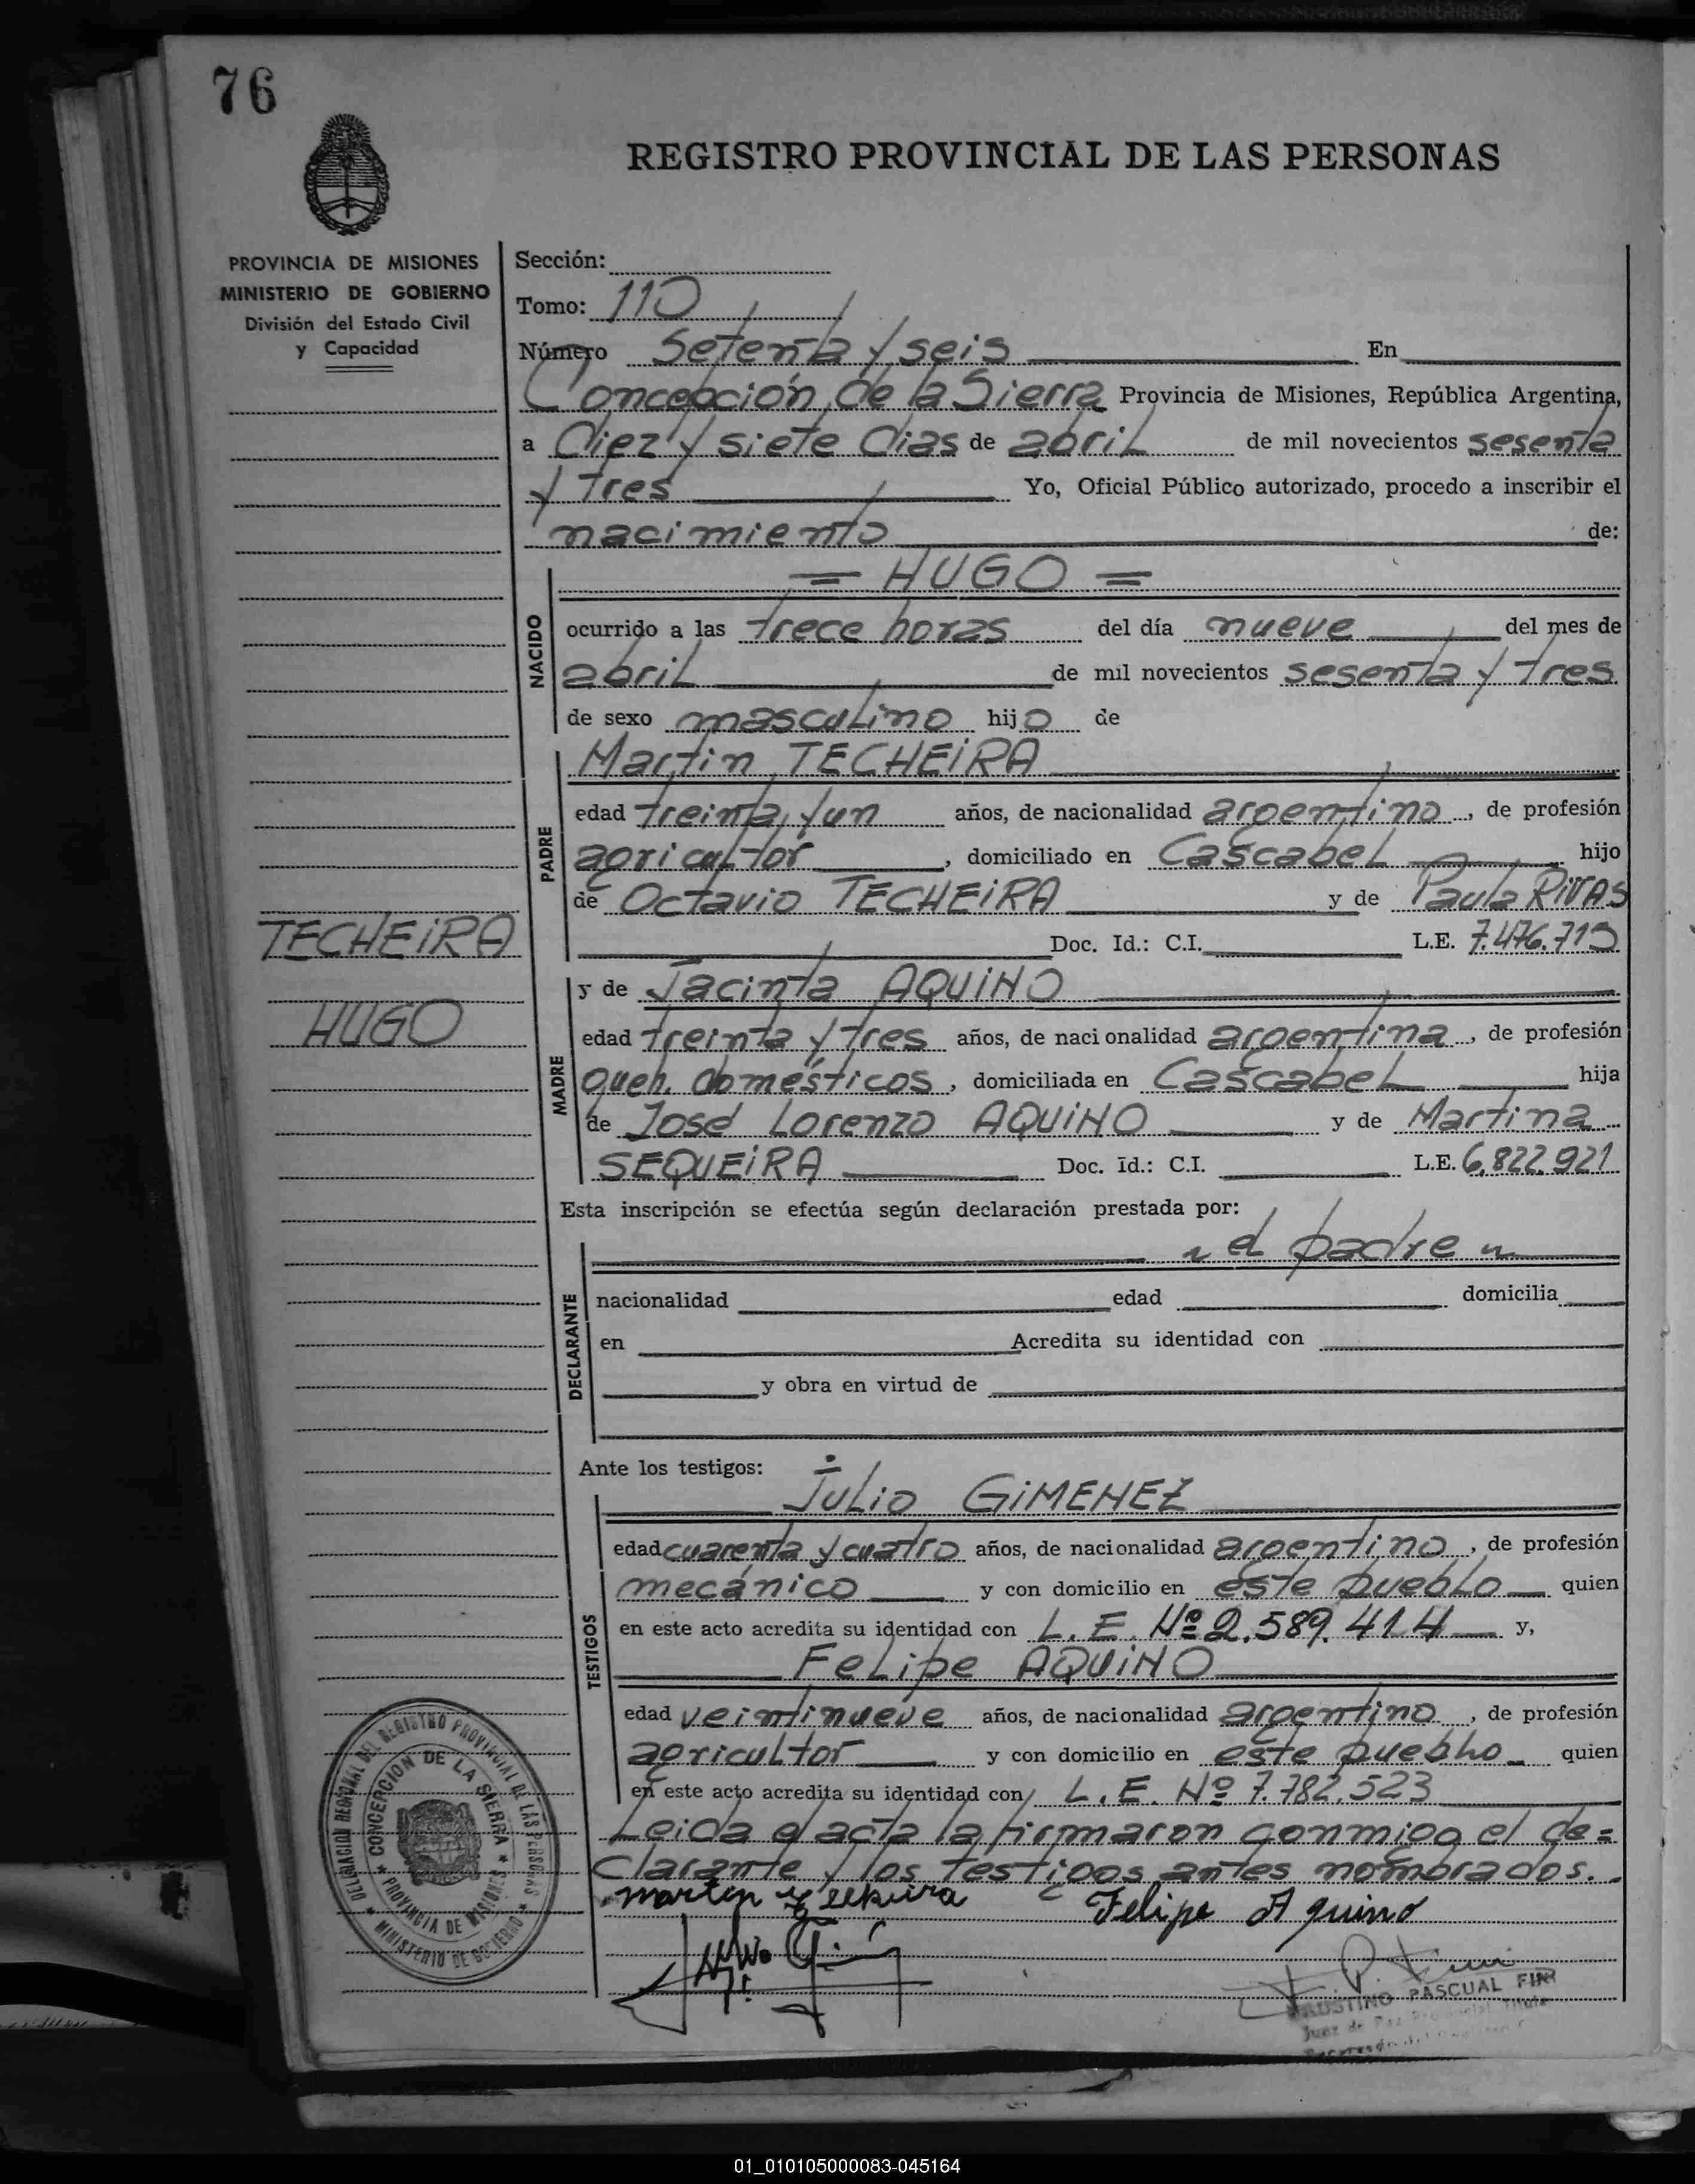 76
REGISTRO PROVINCIAL DE LAS PERSONAS
PROVINCIA DE MISIONES
MINISTERIO DE GOBIERNO
División del Estado Civil
y Capacidad
Sección:
Tomo: 110
Número Setenta y seis En
Concepción de la Sierra Provincia de Misiones, República Argentina,
a diez y siete dias de abril de mil novecientos sesenta
y tres Yo, Oficial Público autorizado, procedo a inscribir el
nacimiento de:
NACIDO
= HUGO =
ocurrido a las trece horas del día nueve del mes de
abril de mil novecientos sesenta y tres
de sexo masculino hijo de
PADRE
Martin TECHEIRA
edad treinta y un años, de nacionalidad argentino, de profesión
agricultor, domiciliado en Cascabel hijo
de Octavio TECHEIRA y de Paula RIVAS
Doc. Id.: C.I. L.E. 7.476.719
TECHEIRA
HUGO
MADRE
y de Jacinta AQUINO
edad treinta y tres años, de nacionalidad argentina, de profesión
queh. domésticos, domiciliada en Cascabel hija
de José Lorenzo AQUINO y de Martina
SEQUEIRA Doc. Id.: C.I. L.E. 6.822.921
Esta inscripción se efectúa según declaración prestada por:
DECLARANTE
el padre
nacionalidad edad domicilia
en Acredita su identidad con
y obra en virtud de
Ante los testigos:
TESTIGOS
Julio GIMENEZ
edad cuarenta y cuatro años, de nacionalidad argentino, de profesión
mecánico y con domicilio en este pueblo quien
en este acto acredita su identidad con L. E. Nº 2.589.414 y,
Felipe AQUINO
edad veintinueve años, de nacionalidad argentino, de profesión
agricultor y con domicilio en este pueblo quien
en este acto acredita su identidad con L. E. Nº 7.782.523
Leida el acta la firmaron conmigo el de=
clarante y los testigos antes nombrados.
martin techeira Felipe Aquino
DELEGACION REGIONAL DEL REGISTRO PROVINCIAL DE LAS PERSONAS
MINISTERIO DE GOBIERNO
CONCEPCION DE LA SIERRA
PROVINCIA DE MISIONES
PASCUAL
Juez de Paz
01_010105000083-045164